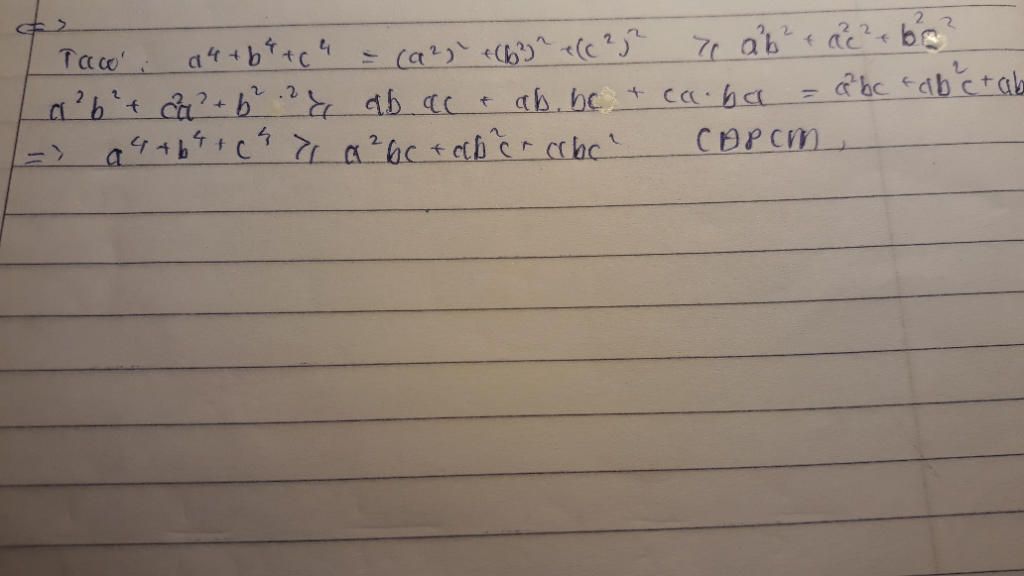 <=>
Ta có: a⁴ + b⁴ + c⁴ = (a²)² + (b²)² + (c²)² ≥ a²b² + a²c² + b²c²
a²b² + c²a² + b² ² ≥ ab.ac + ab.bc + ca.ba = a²bc + ab²c + ab
=> a⁴ + b⁴ + c⁴ ≥ a²bc + ab²c + abc² CĐPCM